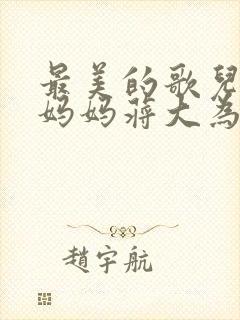 最美的歌兒
妈妈蒋大為
趙宇航